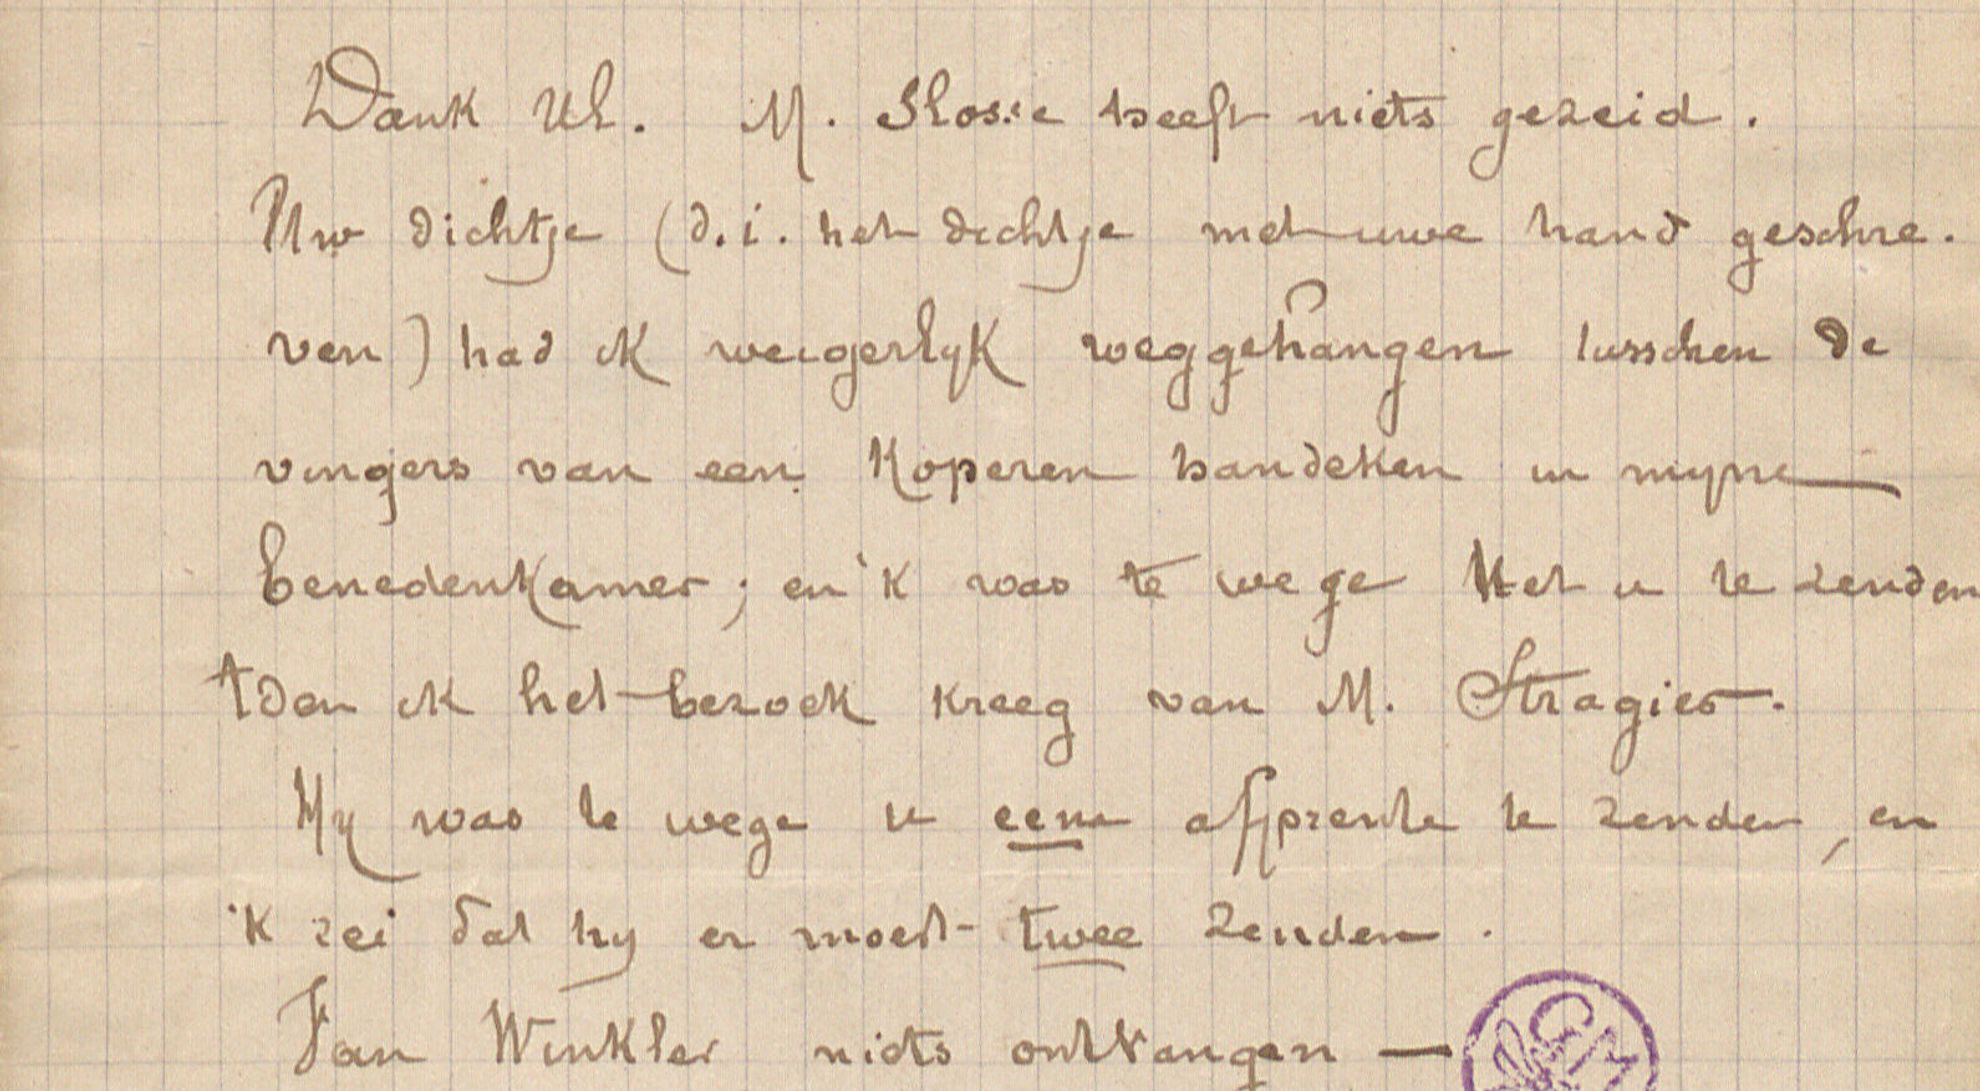 Dank Ul. M. Slosse heeft niets gezeid.
Uw dichtje (d.i. het dichtje met uwe hand geschre-
ven) had ik weigerlyk weggehangen tusschen de
vingers van een koperen handeken in myne
benedenkamer; en 'k was te wege het u te zenden
tden ik het bezoek kreeg van M. Stragier.
Hy was te wege u eene afprente te zenden, en
'k zei dat hy er moest twee zenden.
Van Winkler niets ontvangen —